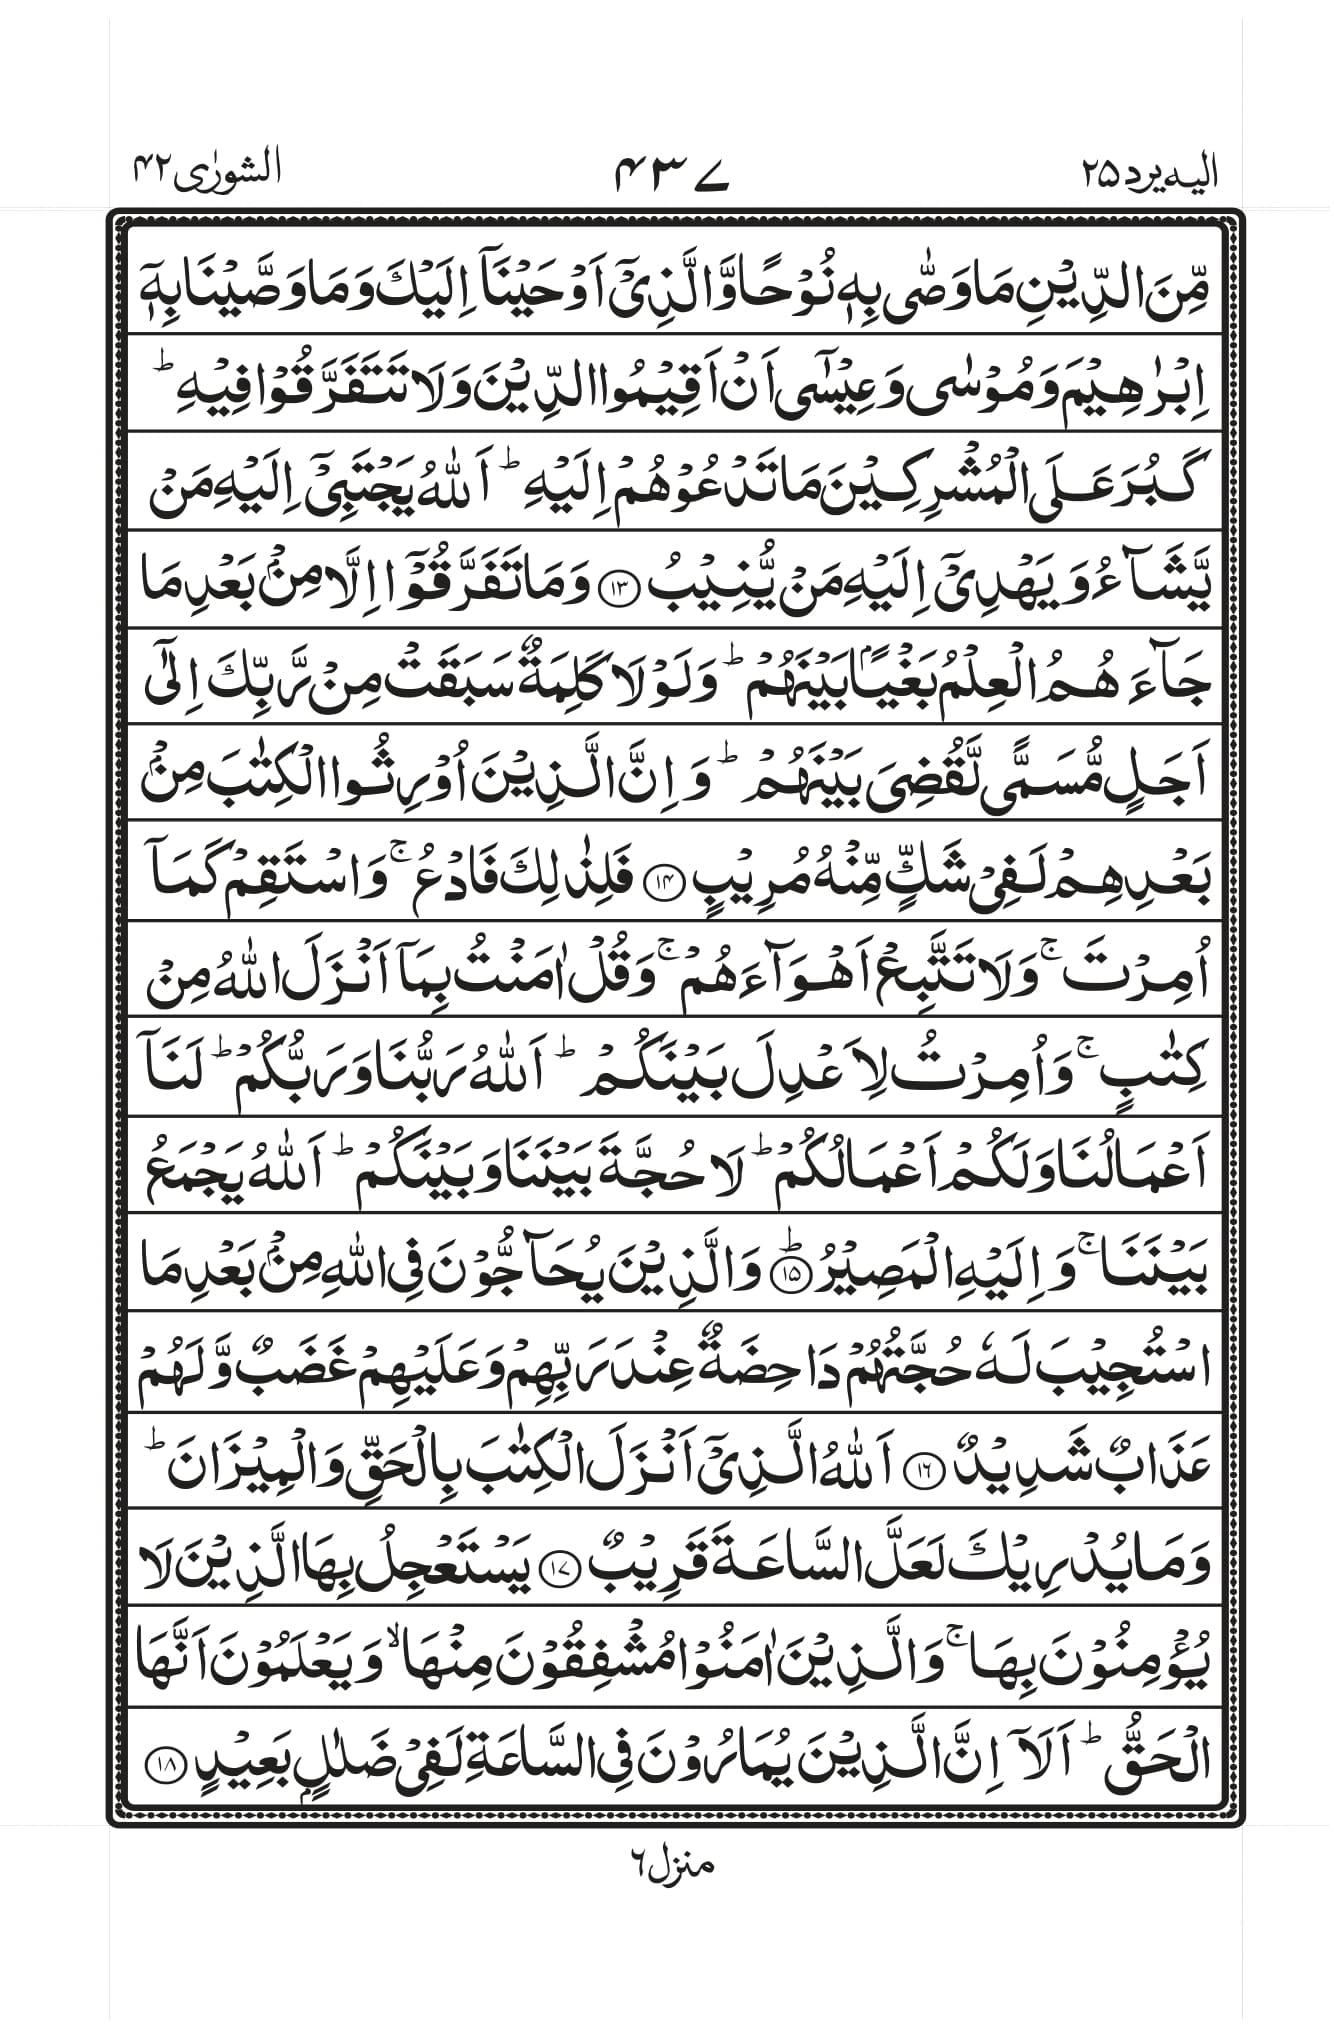 الیه یرد ۲۵ ۴۳۷ الشورٰی ۴۲
مِّنَ الدِّیۡنِ مَا وَصّٰی بِهٖ نُوۡحًا وَّالَّذِیۡۤ اَوۡحَیۡنَاۤ اِلَیۡكَ وَمَا وَصَّیۡنَا بِهٖۤ
اِبۡرٰهِیۡمَ وَمُوۡسٰی وَعِیۡسٰۤی اَنۡ اَقِیۡمُوا الدِّیۡنَ وَلَا تَتَفَرَّقُوۡا فِیۡهِ ؕ
كَبُرَ عَلَی الۡمُشۡرِكِیۡنَ مَا تَدۡعُوۡهُمۡ اِلَیۡهِ ؕ اَللّٰهُ یَجۡتَبِیۡۤ اِلَیۡهِ مَنۡ
یَّشَآءُ وَیَهۡدِیۡۤ اِلَیۡهِ مَنۡ یُّنِیۡبُ ۱۳ وَمَا تَفَرَّقُوۡۤا اِلَّا مِنۡۢ بَعۡدِ مَا
جَآءَهُمُ الۡعِلۡمُ بَغۡیًۢا بَیۡنَهُمۡ ؕ وَلَوۡلَا كَلِمَةٌ سَبَقَتۡ مِنۡ رَّبِّكَ اِلٰۤی
اَجَلٍ مُّسَمًّی لَّقُضِیَ بَیۡنَهُمۡ ؕ وَاِنَّ الَّذِیۡنَ اُوۡرِثُوا الۡكِتٰبَ مِنۡۢ
بَعۡدِهِمۡ لَفِیۡ شَكٍّ مِّنۡهُ مُرِیۡبٍ ۱۴ فَلِذٰلِكَ فَادۡعُ ۚ وَاسۡتَقِمۡ كَمَاۤ
اُمِرۡتَ ۚ وَلَا تَتَّبِعۡ اَهۡوَآءَهُمۡ ۚ وَقُلۡ اٰمَنۡتُ بِمَاۤ اَنۡزَلَ اللّٰهُ مِنۡ
كِتٰبٍ ۚ وَاُمِرۡتُ لِاَعۡدِلَ بَیۡنَكُمۡ ؕ اَللّٰهُ رَبُّنَا وَرَبُّكُمۡ ؕ لَنَاۤ
اَعۡمَالُنَا وَلَكُمۡ اَعۡمَالُكُمۡ ؕ لَا حُجَّةَ بَیۡنَنَا وَبَیۡنَكُمۡ ؕ اَللّٰهُ یَجۡمَعُ
بَیۡنَنَا ۚ وَاِلَیۡهِ الۡمَصِیۡرُ ؕ ۱۵ وَالَّذِیۡنَ یُحَآجُّوۡنَ فِی اللّٰهِ مِنۡۢ بَعۡدِ مَا
اسۡتُجِیۡبَ لَهٗ حُجَّتُهُمۡ دَاحِضَةٌ عِنۡدَ رَبِّهِمۡ وَعَلَیۡهِمۡ غَضَبٌ وَّلَهُمۡ
عَذَابٌ شَدِیۡدٌ ۱۶ اَللّٰهُ الَّذِیۡۤ اَنۡزَلَ الۡكِتٰبَ بِالۡحَقِّ وَالۡمِیۡزَانَ ؕ
وَمَا یُدۡرِیۡكَ لَعَلَّ السَّاعَةَ قَرِیۡبٌ ۱۷ یَسۡتَعۡجِلُ بِهَا الَّذِیۡنَ لَا
یُؤۡمِنُوۡنَ بِهَا ۚ وَالَّذِیۡنَ اٰمَنُوۡا مُشۡفِقُوۡنَ مِنۡهَا ۙ وَیَعۡلَمُوۡنَ اَنَّهَا
الۡحَقُّ ؕ اَلَاۤ اِنَّ الَّذِیۡنَ یُمَارُوۡنَ فِی السَّاعَةِ لَفِیۡ ضَلٰلٍۭ بَعِیۡدٍ ۱۸
منزل ۶